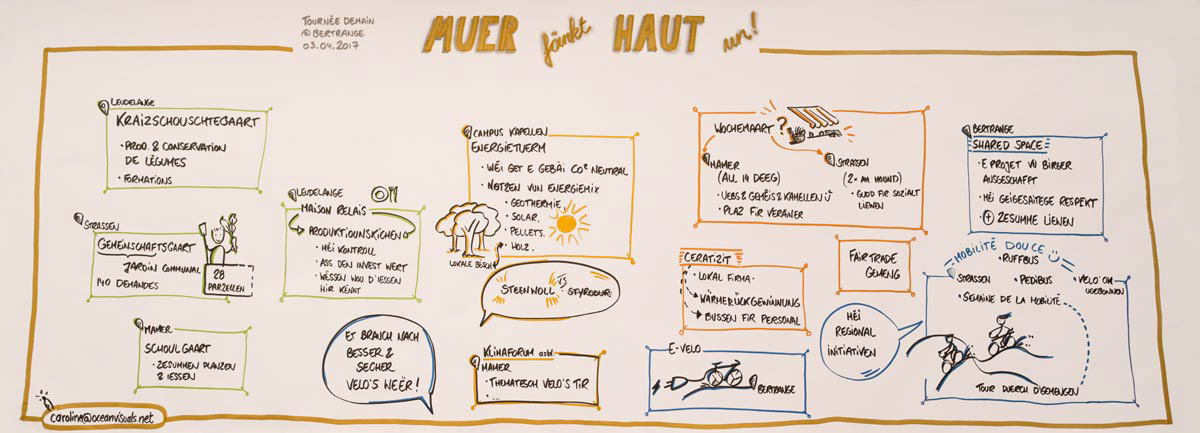 TOURNÉE DEMAIN
@ BERTRANGE
03.04.2017
MUER fänkt HAUT un!
LEUDELANGE
KRAIZSCHOUSCHTEGAART
• PROD. & CONSERVATION
DE LÉGUMES
• FORMATIONS
STRASSEN
GEMEINSCHAFTSGAART
JARDIN COMMUNAL
140 DEMANDES
28
PARZELLEN
MAMER
SCHOULGAART
• ZESUMMEN PLANZEN
& IESSEN
LEUDELANGE
MAISON RELAIS
PRODUKTIOUNSKICHEN
• MÉI KONTROLL
• ASS DEN INVEST WERT
• WËSSEN WOU D'IESSEN
HIR KËNNT
ET BRAUCH NACH
BESSER &
SECHER
VELO'S WEËR!
CAMPUS KAPELLEN
ENERGIETUERM
• WÉI GET E GEBÄI CO² NEUTRAL
• NOTZEN VUN ENERGIEMIX
• GEOTHERMIE,
• SOLAR,
• PELLETS,
• HOLZ.
LOKALE BËSCH
STEENWOLL VS STYRODUR
KLIMAFORUM asbl
MAMER
• THEMATESCH VELO'S TIR
• ...
WOCHEMAART?
MAMER
(ALL 14 DEEG)
• UEBS & GEMÉIS & KAMELLEN
• PLAZ FIR VERÄINER
STRASSEN
(2x AM MOUND)
• GUDD FIR SOZIALT
LIEWEN
CERATIZIT
• LOKAL FIRMA
WÄRMERÜCKGEWINNUNG
BUSSEN FIR PERSONAL
FAIRTRADE
GEMENG
E-VELO
BERTRANGE
MÉI
REGIONAL
INITIATIVEN
BERTRANGE
SHARED SPACE
• E PROJET VU BIRGER
AUSGESCHAFFT
• MÉI GEIGESÄITEGE RESPEKT
+ ZESUMME LIEWEN
MOBILITÉ DOUCE
• RUFFBUS
STRASSEN
• PEDIBUS
• VELO'OH
• SEMAINE DE LA MOBILITÉ
TOUR DUERCH D'GEMENGEN
caroline@oceanvisuals.net